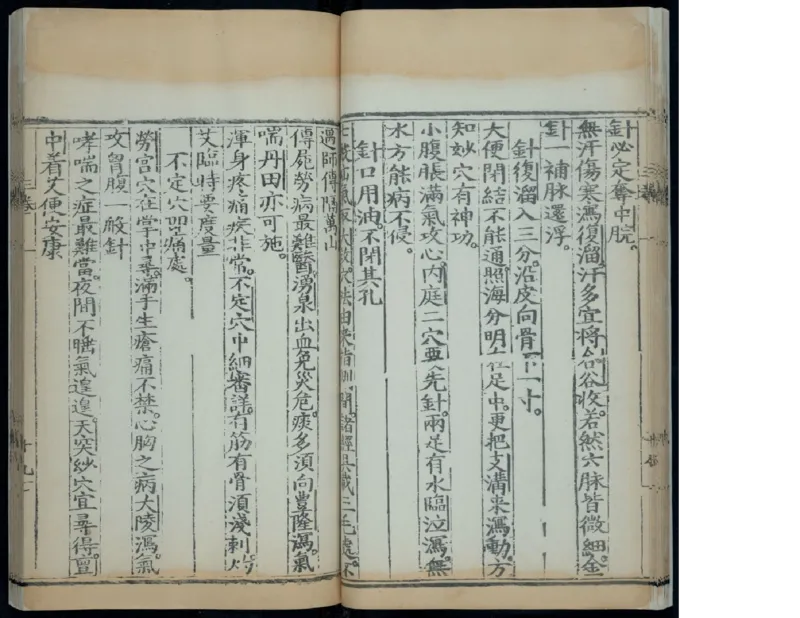 針必定奪中脘。
無汗傷寒瀉復溜。汗多宜將合谷收。若然六脉皆微細。金
針一補脉還浮。
針復溜入三分。沿皮向骨下一寸。
大便閉結不能通。照海分明在足中。更把支溝來瀉動。方
知妙穴有神功。
小腹脹滿氣攻心。內庭二穴要先針。兩足有水臨泣瀉。無
水方能病不侵。
針口用油。不閉其孔
七般疝氣取大敦。穴法由來指側間。諸經具載三毛處。不
遇師傳隔萬山
傳屍勞病最難醫。湧泉出血免災危。痰多須向豐隆瀉。氣
喘丹田亦可施。
渾身疼痛疾非常。不定穴中細審詳。有筋有骨須淺刺。灼
艾臨時要度量
不定穴痛處。
勞宮穴在掌中尋。滿手生瘡痛不禁。心胸之病大陵瀉。氣
攻胸腹一般針
哮喘之症最難當。夜間不睡氣遑遑。天突妙穴宜尋得。亶
中着艾便安康
三卷
十九